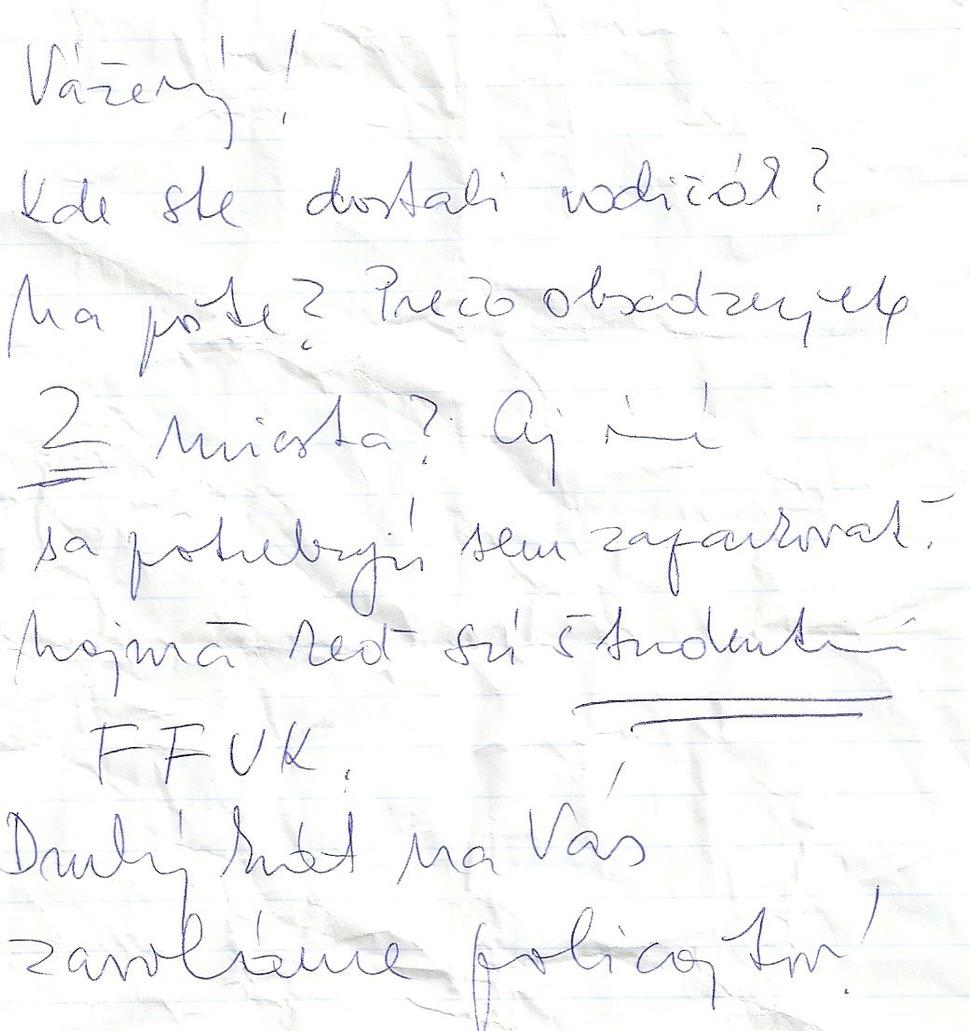 Vážený!
Kde ste dostali vodičák?
Na pošte? Prečo obsadzujete
2 miesta? Aj iní
sa potrebujú sem zaparkovať.
Najmä keď sú študenti
FFUK.
Druhý krát na Vás
zavoláme policajtov!